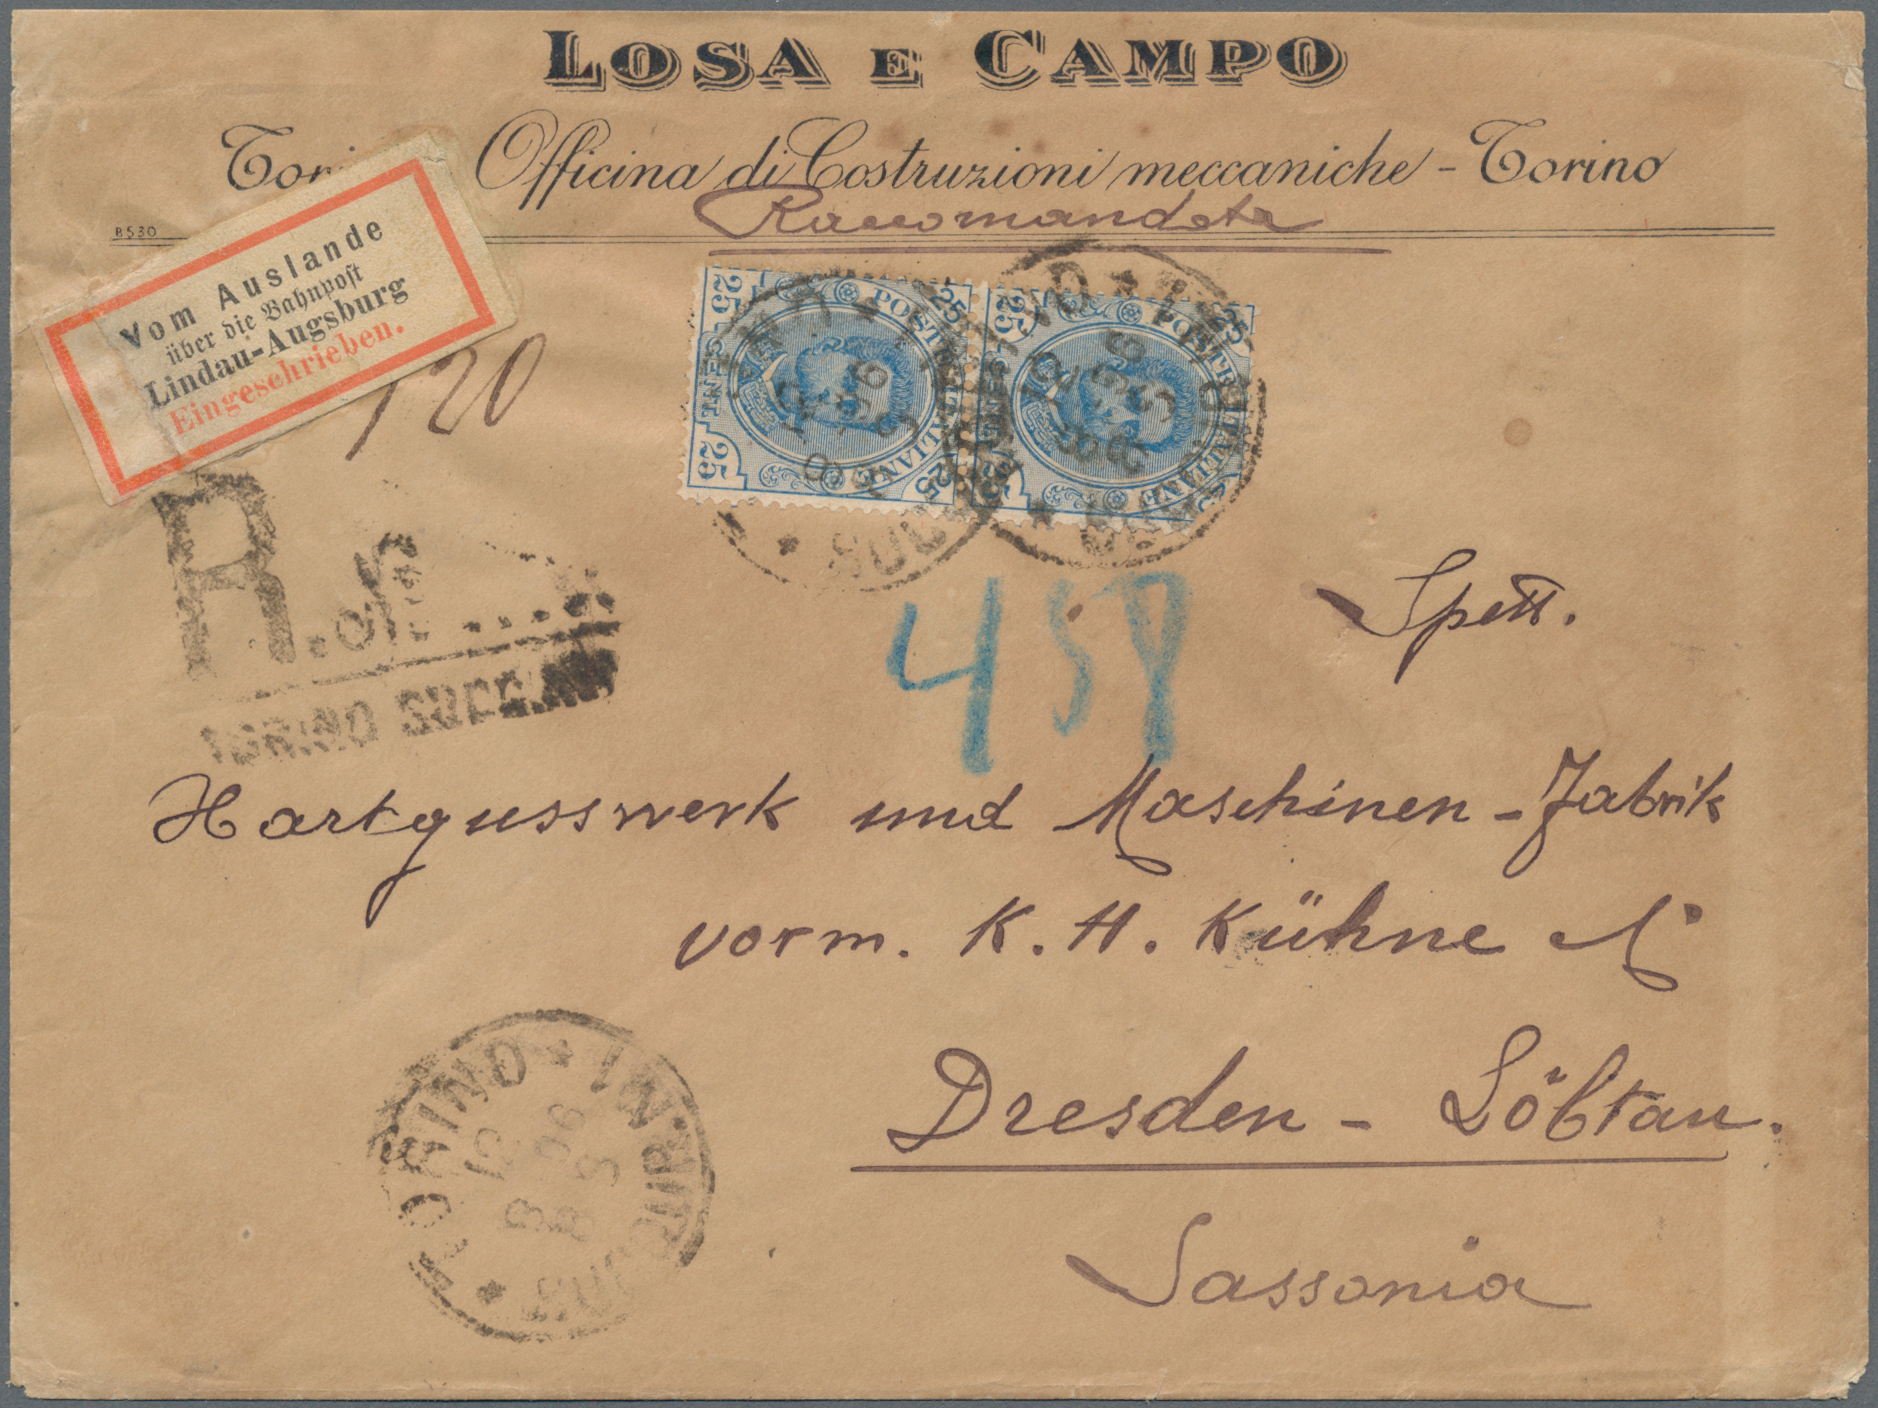 LOSA E CAMPO
Officina di Costruzioni meccaniche - Torino
Raccomandata
8530
Vom Auslande
über die Bahnpost
Lindau-Augsburg
Eingeschrieben.
120
25 POSTE ITALIANE 25
25 CENT 25
25 POSTE ITALIANE 25
25
R.
TORINO
458
Spett.
Hartgusswerk und Maschinen-Fabrik
vorm. K. H. Kühne
Dresden - Löbtau.
Sassonia
TORINO
12
8 96
8 S